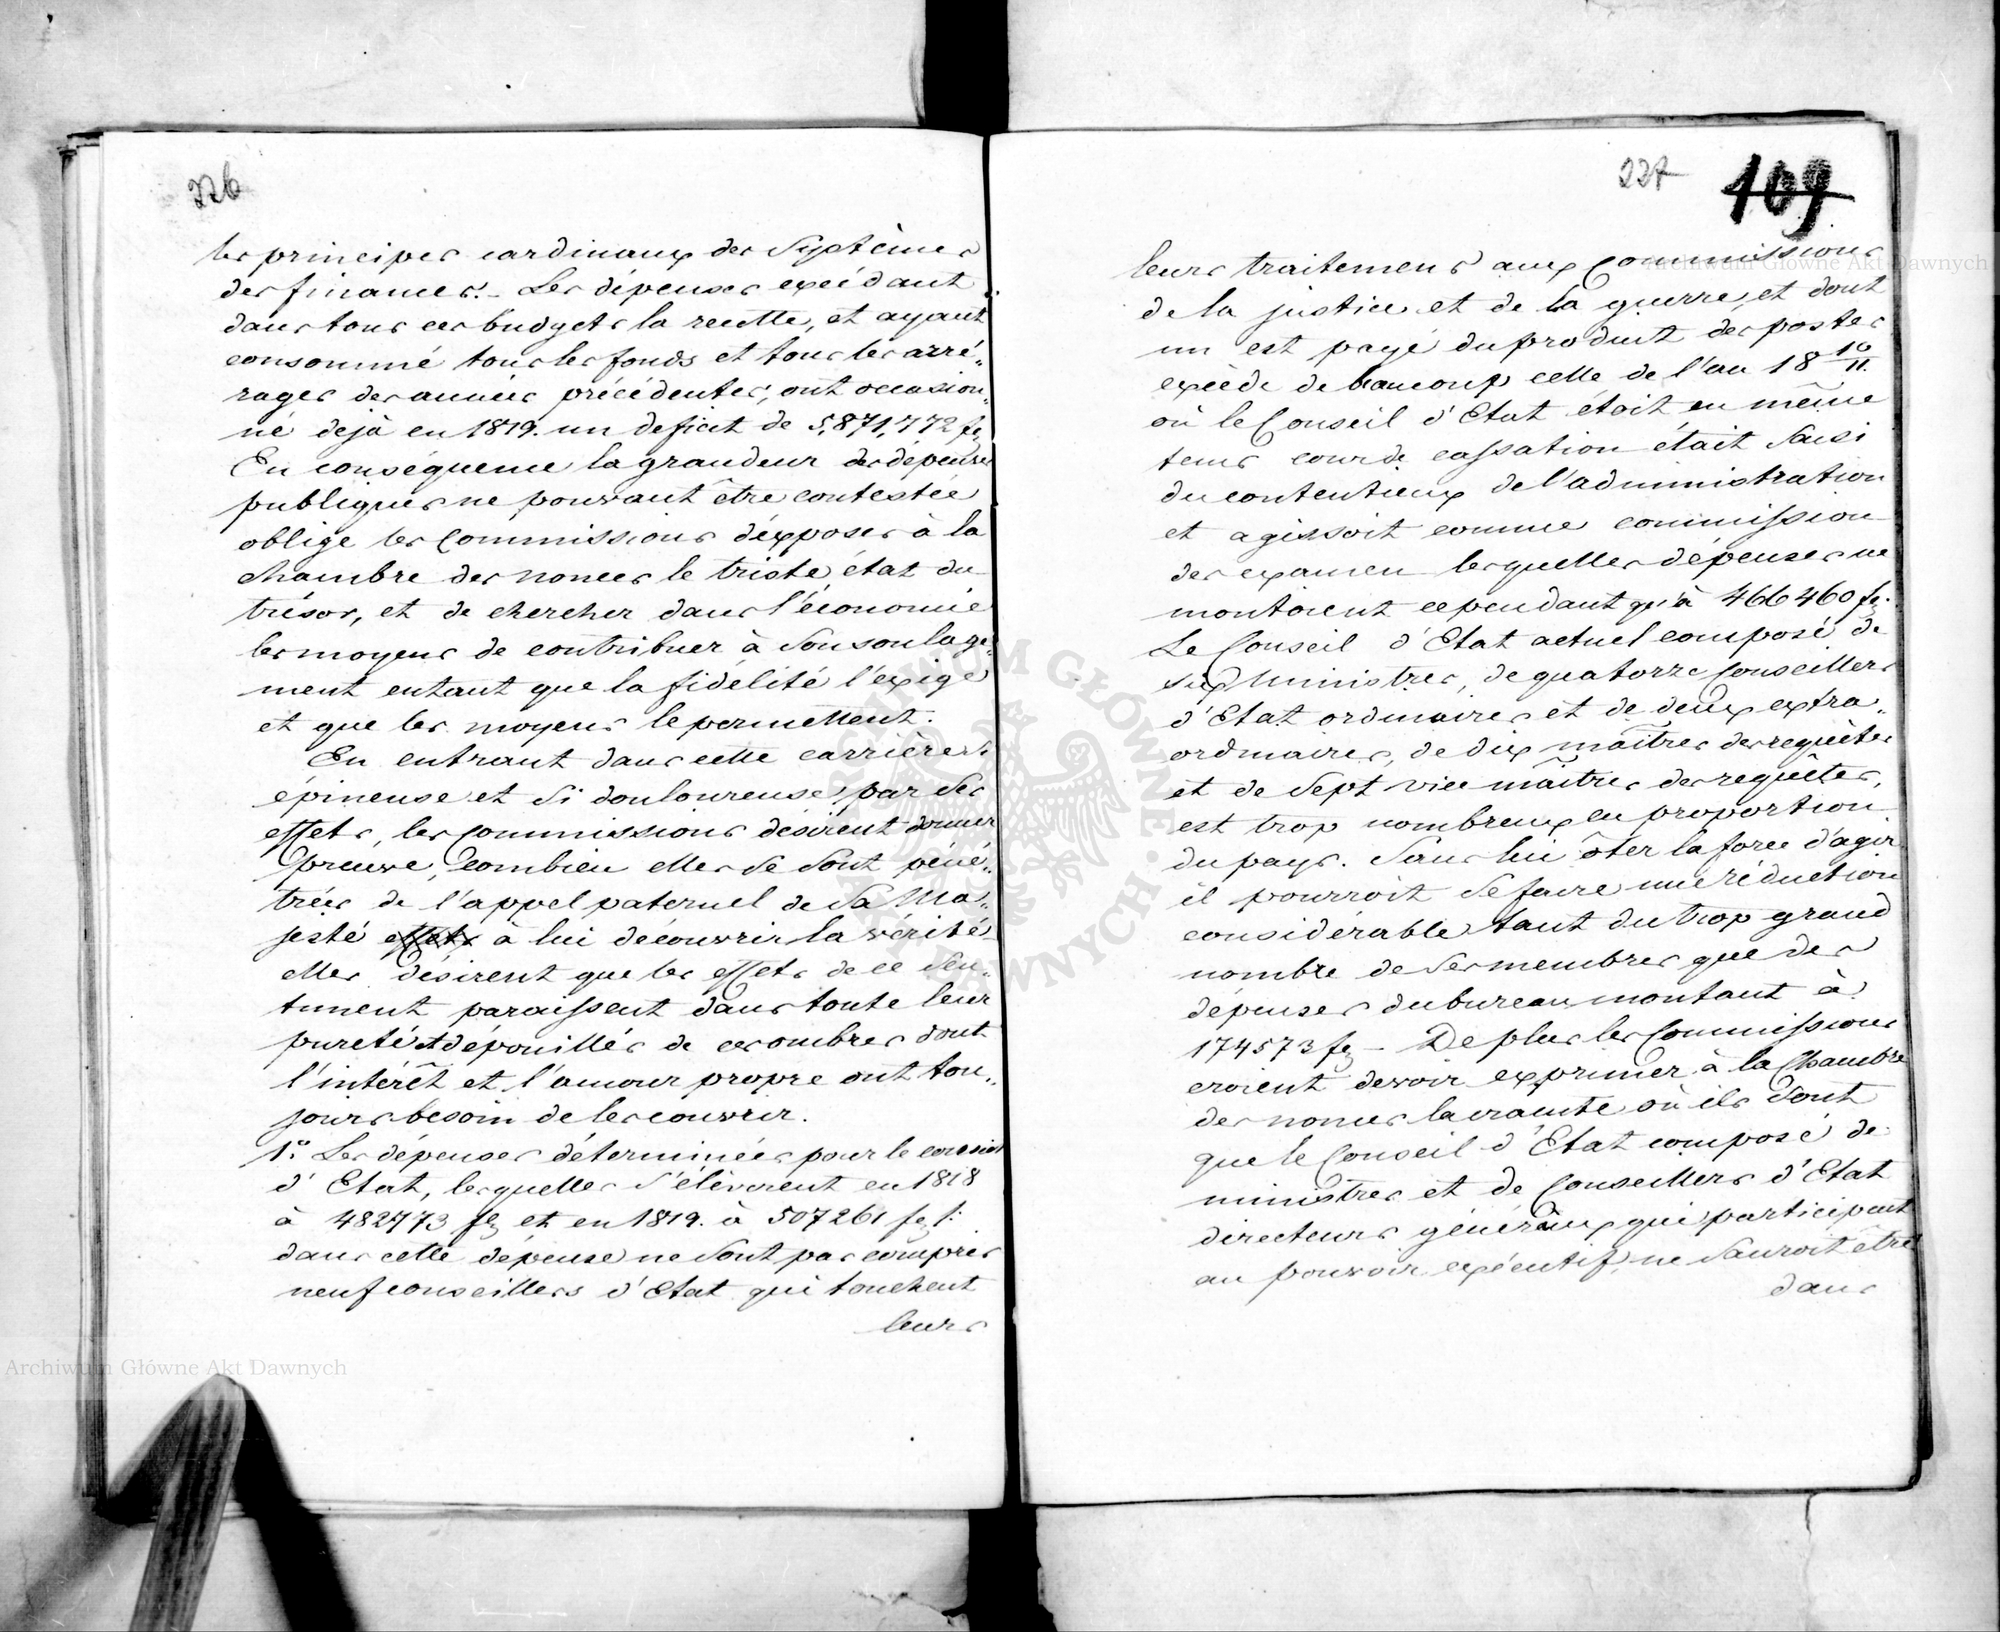 226
les principes cardinaux des Systèmes
des finances. – Les dépenses excédant
dans tous ces budgets la recette, et ayant
consommé tous les fonds et tous les arré„
rages des années précédentes, ont occasion„
né dejà en 1819. un deficit de 5,871,772 fl
En conséquence la grandeur des dépenses
publiques ne pouvant être contestée
oblige les Commissions d'exposer à la
chambre des nonces le triste état du
trésor, et de chercher dans l'économie
les moyens de contribuer à son soulage„
ment entant que la fidélité l'exige
et que les moyens le permettent.
En entrant dans cette carrière si
épineuse et si douloureuse par ses
effets, les Commissions désirent donner
preuve, combien elles se sont péné„
trées de l'appel paternel de Sa Ma„
jesté effets à lui découvrir la vérité
elles désirent que les effets de ce sen„
timent paraissent dans toute leur
pureté et dépouillés de ces ombres dont
l'intérêt et l'amour propre ont tou„
jours besoin de les couvrir.
1° Les dépenses déterminées pour le conseil
d'Etat, lesquelles s'élèverent en 1818
à 482773 fl et en 1819. à 507261 fl:
dans cette dépense ne sont pas compris
neuf conseillers d'Etat qui touchent
leurs
227 109
leurs traitemens aux Commissions
de la justice et de la guerre, et dont
un est payé du produit des postes
excède de beaucoup celle de l'an 18 10/11.
où le Conseil d'Etat étoit en même
tems cour de cassation était saisi
du contentieux de l'administration
et agissoit comme commission
des examen lesquelles dépenses ne
montoient cependant qu'à 466460 fl.
Le Conseil d'Etat actuel composé de
six Ministres, de quatorze Conseillers
d'Etat ordinaires et de deux extra„
ordinaires, de dix maîtres des requêtes
et de sept vice maîtres des requêtes,
est trop nombreux en proportion
du pays. Sans lui ôter la force d'agir
il pourroit se faire une réduction
considérable tant du trop grand
nombre de ses membres que des
dépenses du bureau montant à
174573 fl – De plus les Commissions
croient devoir exprimer à la Chambre
des nonces la crainte où ils sont
que le Conseil d'Etat composé de
ministres et de Conseillers d'Etat
directeurs généraux qui participent
au pouvoir exécutif ne sauroit être
dans
Archiwum Główne Akt Dawnych
Archiwum Główne Akt Dawnych
ARCHIWUM GŁÓWNE AKT DAWNYCH